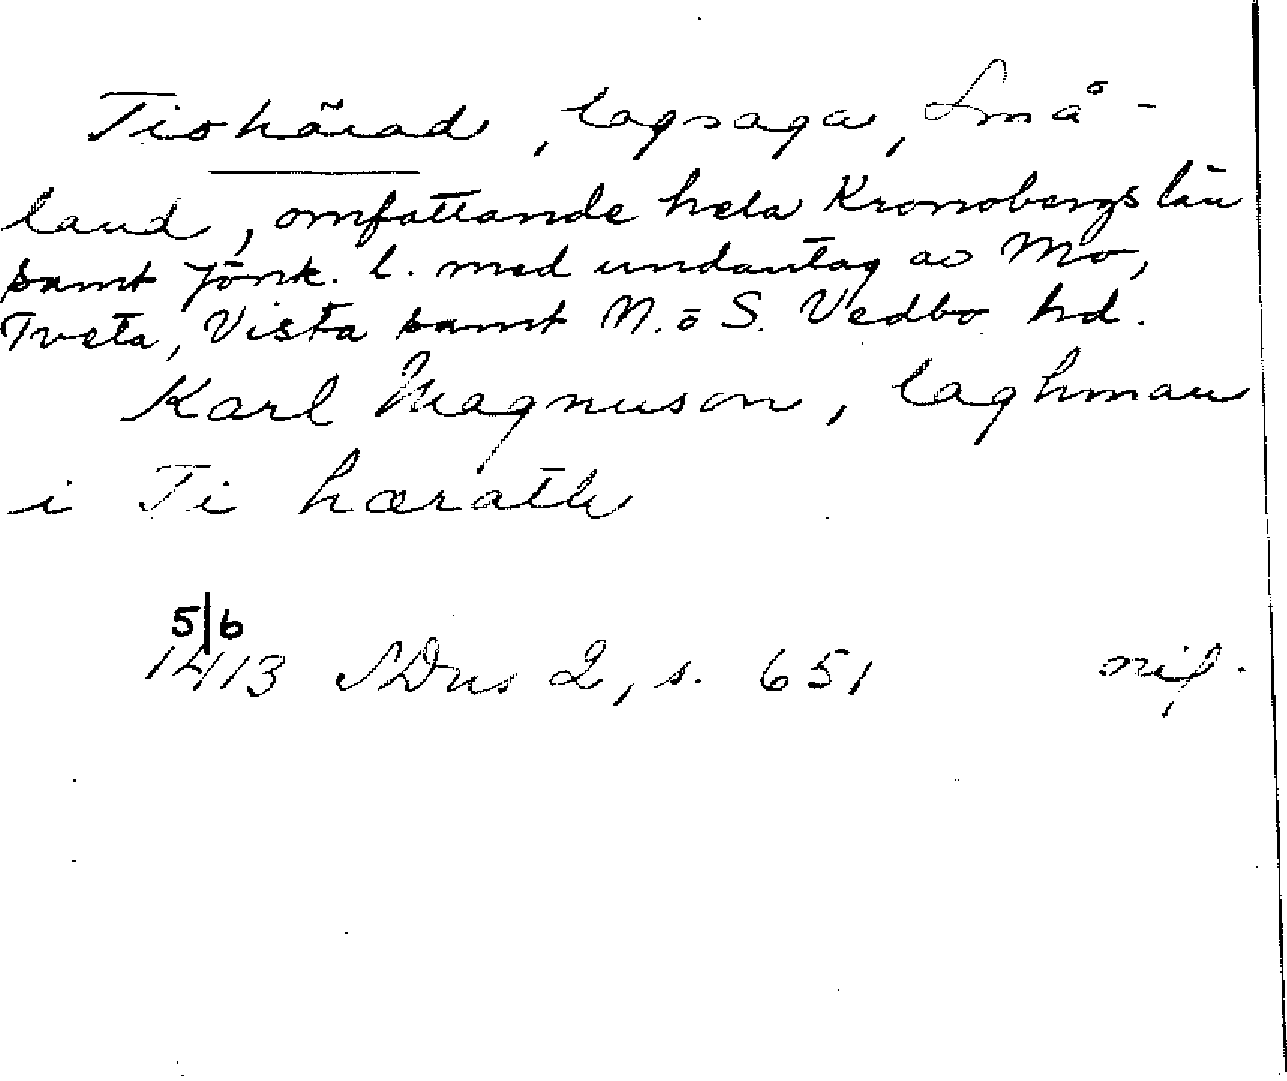 Tiohärad, lagsaga, Små-
land, omfattande hela Kronobergs län
samt Jönk. l. med undantag av Mo,
Tveta, Vista samt N. o S. Vedbo hd.
Karl Magnuson, laghman
i Ti hærathe
5/6
1413 SDns 2, s. 651